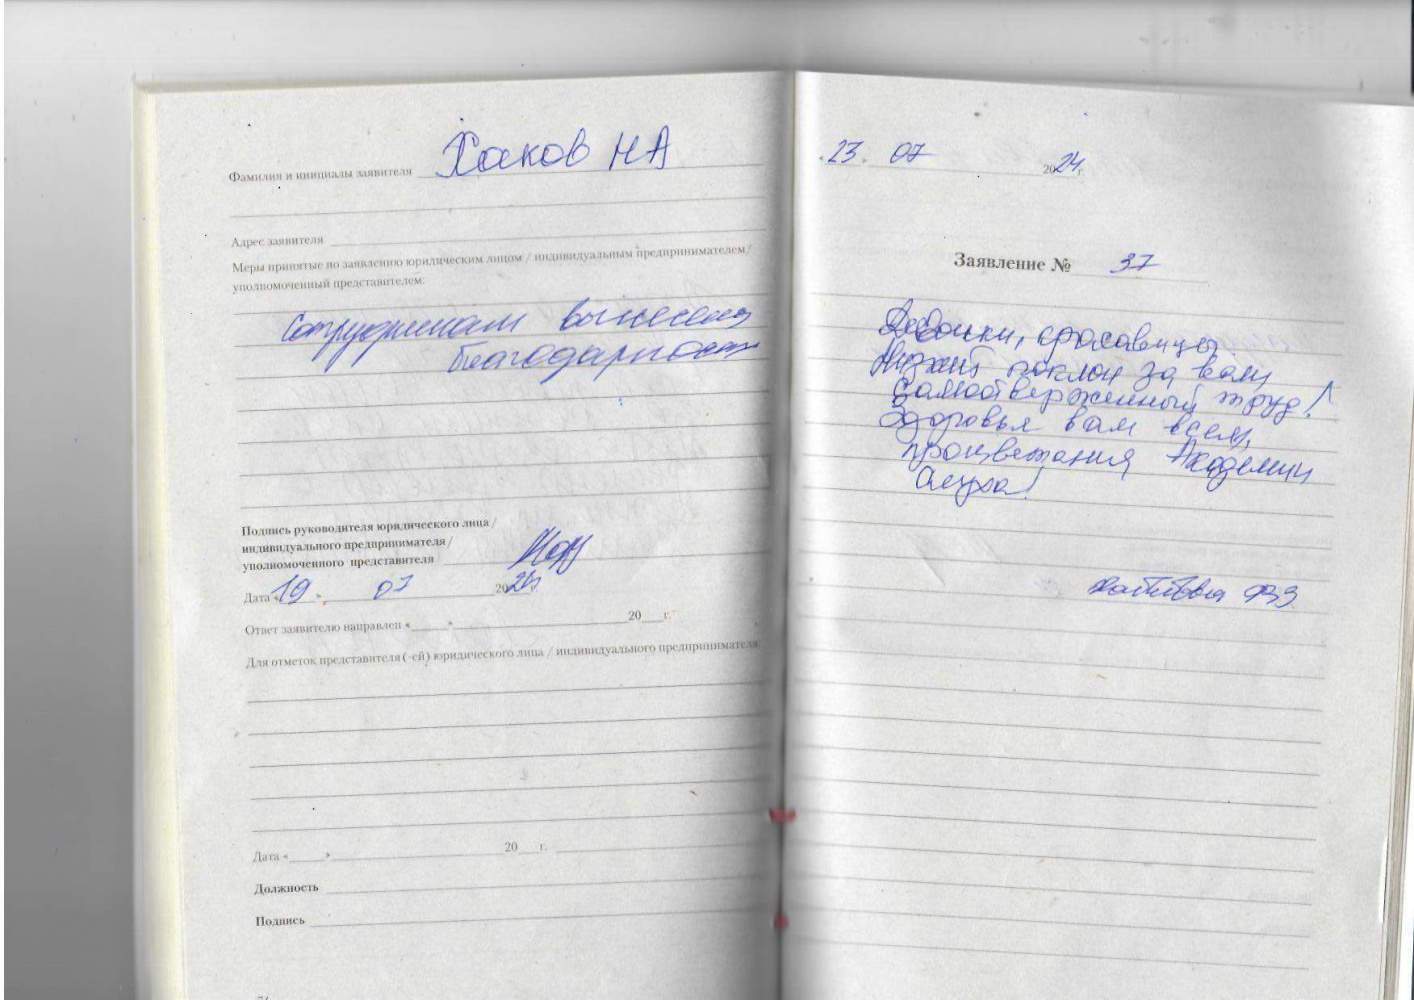 Фамилия и инициалы заявителя Хаков НА
Адрес заявителя
Меры принятые по заявлению юридическим лицом / индивидуальным предпринимателем/
уполномоченный представителем:
Сотрудникам вынесена
благодарность
Подпись руководителя юридического лица/
индивидуального предпринимателя/
уполномоченного представителя
Дата «19» 07 2024
Ответ заявителю направлен «____»____ 20___г.
Для отметок представителя (-ей) юридического лица / индивидуального предпринимателя
Дата «____»____ 20___г.
Должность
Подпись
23. 07 2024г.
Заявление № 37
Девочки, красавицы
Низкий поклон за ваш
самоотверженный труд!
Здоровья вам всем,
процветания Академии
Слуха!
ФЗ